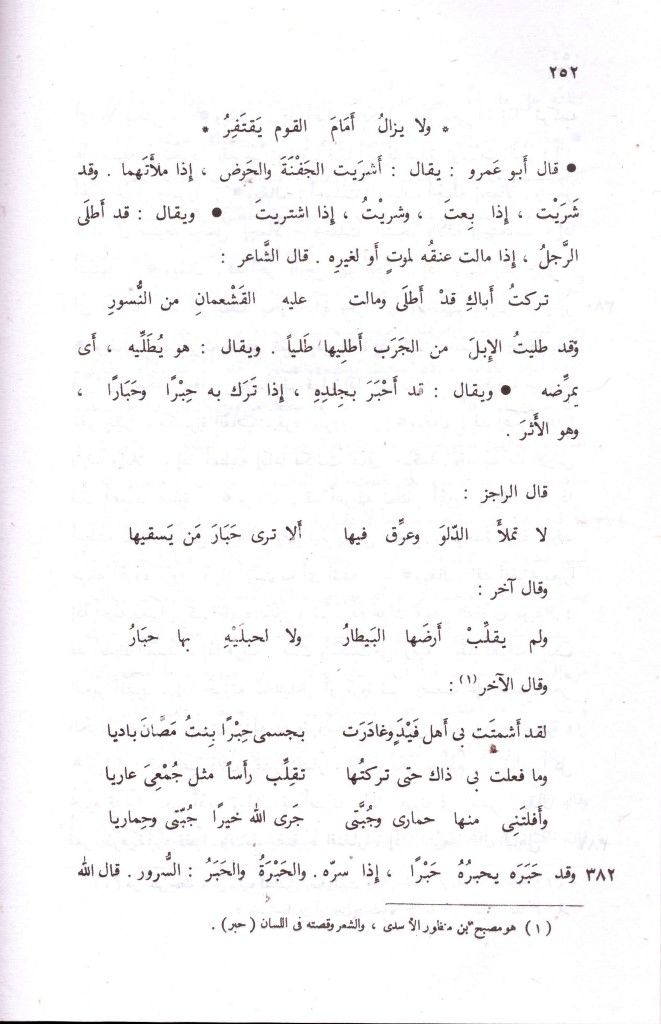 ٢٥٢
* ولا يزالُ أَمَامَ القوم يَقتَفِرُ *
● قال أَبو عَمرو : يقال : أَشرَيت الجَفْنَةَ والحَوض ، إذا ملأتَهما . وقد
شَرَيْت ، إذا بِعتَ ، وشريْتُ ، إذا اشتريتَ ● ويقال : قد أَطلَى
الرَّجلُ ، إذا مالت عنقُه لموتٍ أَو لغيرِه . قال الشَّاعر :
تركتُ أَباكِ قدْ أَطلَى ومالت عليه القَشْعمانِ من النُّسورِ
وقد طليتُ الإبلَ من الجَرَب أَطلِيها طَلياً . ويقال : هو يُطَلِّيه ، أَى
يمرِّضه ● ويقال : قد أَحْبَرَ بجِلدِهِ ، إذا تَرَك به حِبْرًا وحَبَارًا ،
وهو الأَثرَ .
قال الراجز :
لا تملأَ الدّلوَ وعرِّق فيها أَلا ترى حَبَارَ مَن يَسقيها
وقال آخر :
ولم يقلِّبْ أَرضَها البَيطارُ ولا لحبلَيْهِ بها حبَارُ
وقال الآخر (١) :
لقد أَشمتَت بى أَهل فَيْدَ وغادَرَت بجسمى حِبْرًا بِنتُ مَصَّانَ باديا
وما فعلت بى ذاك حتى تركتُها تقلِّب رأَساً مثل جُمْعِىَ عاريا
وأَفلتَنِى منها حمارى وجُبَّتى جَزى الله خيرًا جُبّتى وحِماريا
٣٨٢ وقد حَبَرَه يحبرُهُ حَبْرًا ، إذا سرّه . والحَبْرَةُ والحَبَرُ : السُّرور . قال الله
(١) هو مصبح بن منظور الأسدى ، والشعر وقصته فى اللسان (حبر) .